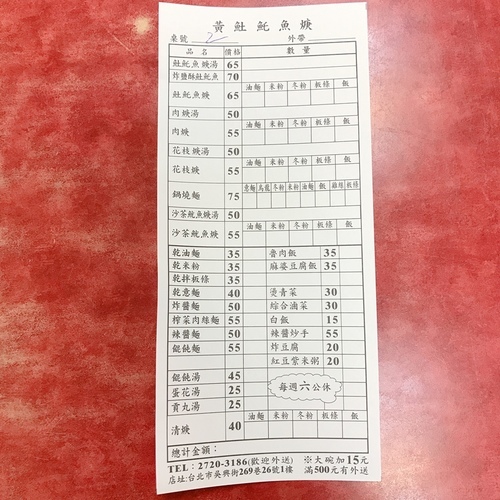 黃魠魠魚焿
桌號 2 外帶
品名 價格 數量
魠魠魚焿湯 65
炸鹽酥魠魠魚 70
魠魠魚焿 65 油麵 米粉 冬粉 板條 飯
肉焿湯 50
肉焿 55 油麵 米粉 冬粉 板條 飯
花枝焿湯 50
花枝焿 55 油麵 米粉 冬粉 板條 飯
鍋燒麵 75 意麵 烏龍 冬粉 米粉 油麵 飯 雞絲 板條
沙茶魷魚焿湯 50
沙茶魷魚焿 55 油麵 米粉 冬粉 板條 飯
乾油麵 35 魯肉飯 35
乾米粉 35 麻婆豆腐飯 35
乾拌板條 35
乾意麵 40 燙青菜 30
炸醬麵 50 綜合滷菜 30
榨菜肉絲麵 55 白飯 15
辣醬麵 50 辣醬炒手 55
餛飩麵 55 炸豆腐 20
紅豆紫米粥 20
餛飩湯 45
蛋花湯 25 每週六公休
貢丸湯 25
清焿 40 油麵 米粉 冬粉 板條 飯
總計金額:
TEL:2720-3186(歡迎外送) ※大碗加15元
店址:台北市吳興街269巷26號1樓 滿500元有外送